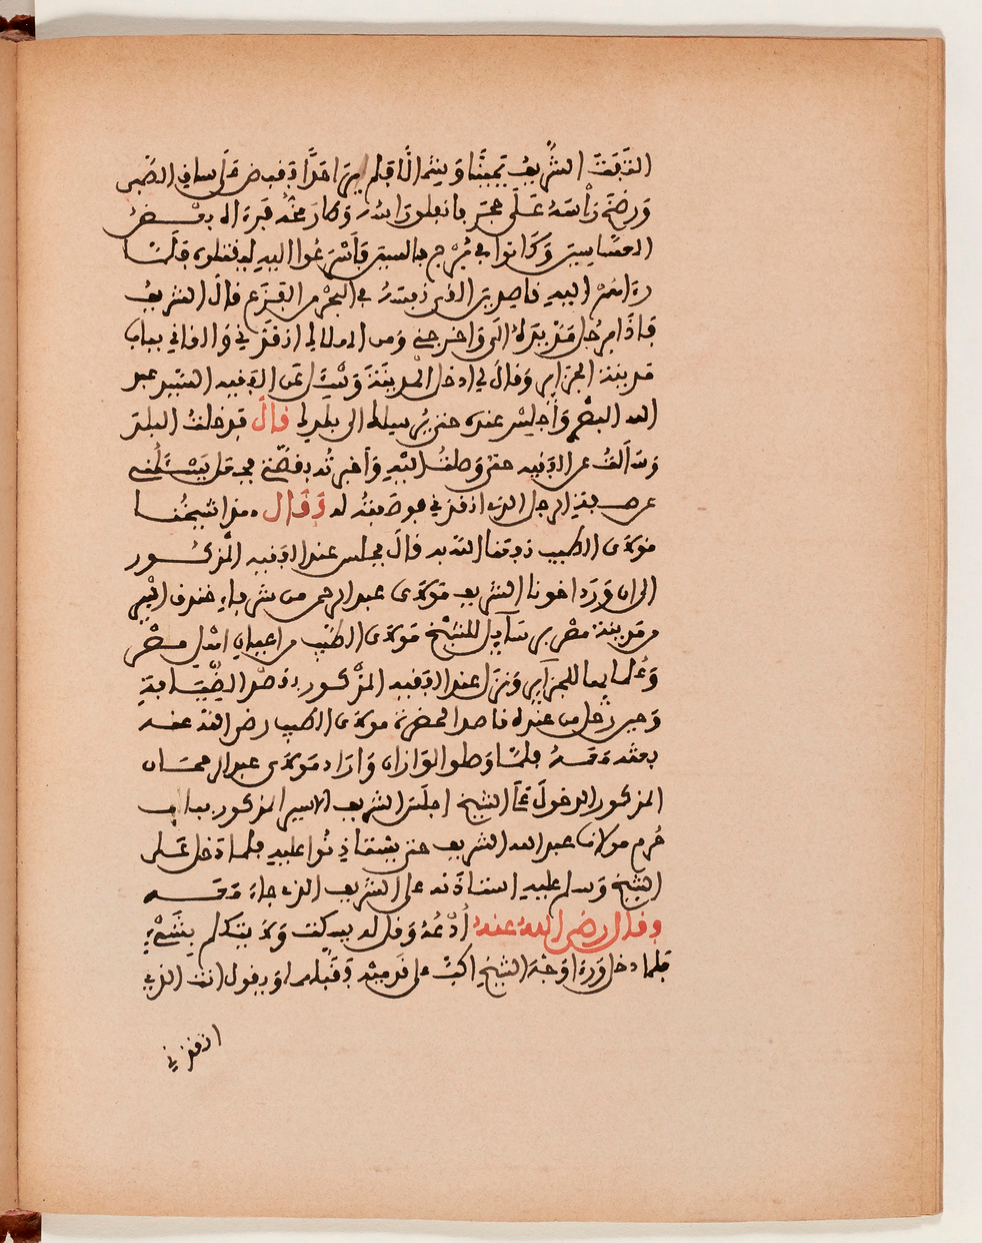 التفت الشريف يمينا وشمالا فلم ير احدا فقبض على ساق الصبي
ورضخ راسه على حجر فانفلق راسه وكان عنده قبره الى بعض
العساسين وكانوا في برج بالسيف فاسرعوا اليه ليقتلوه فلما
راهم اليه قاصدين القى نفسه في البحر من الفزع قال الشريف
فاذا برجل مد يده الي واخرجني ومن الهلاك انقذني والقاني بباب
مدينة الجزاير وقال لي ادخل المدينة وسل عن الفقيه السيد عبد
الله واجلس عنده حتى يرسلك الى بلدك قال فدخلت البلد
وسالت عن الفقيه حتى وصلت اليه واخبرته بقصتي فجعل يسئلني
عن صفة الرجل الذي انقذني فوصفته له وقال هذا شيخنا
مولاي الطيب نفعنا الله به قال فجلس عند الفقيه المذكور
الى ان ورد اخونا الشريف مولاي عبد الرحمن من شرفاء خندق
من مدينة مصر برسايل للشيخ مولاي الطيب من اعيان اهل مصر
وعلمايها للجزاير ونزل عند الفقيه المذكور بقصد الضيافة
وحين رحل من عنده قاصدا لحضرة مولاي الطيب رضي الله عنه
بعثه معه فلما وصلوا لوازان واراد مولاي عبد الرحمان
المذكور الدخول على الشيخ اجلس الشريف الاسير المذكور بباب
حرم مولانا عبد الله الشريف حتى يستاذنوا عليه فلما دخل على
الشيخ وسلم عليه استاذنه على الشريف الذي جاء معه
وقال رضي الله عنه ادعه وقل له يسكت ولا يتكلم بشيء
فلما دخل وراا وجه الشيخ اكب على قدميه يقبلهما ويقول انت الذي
انقذني